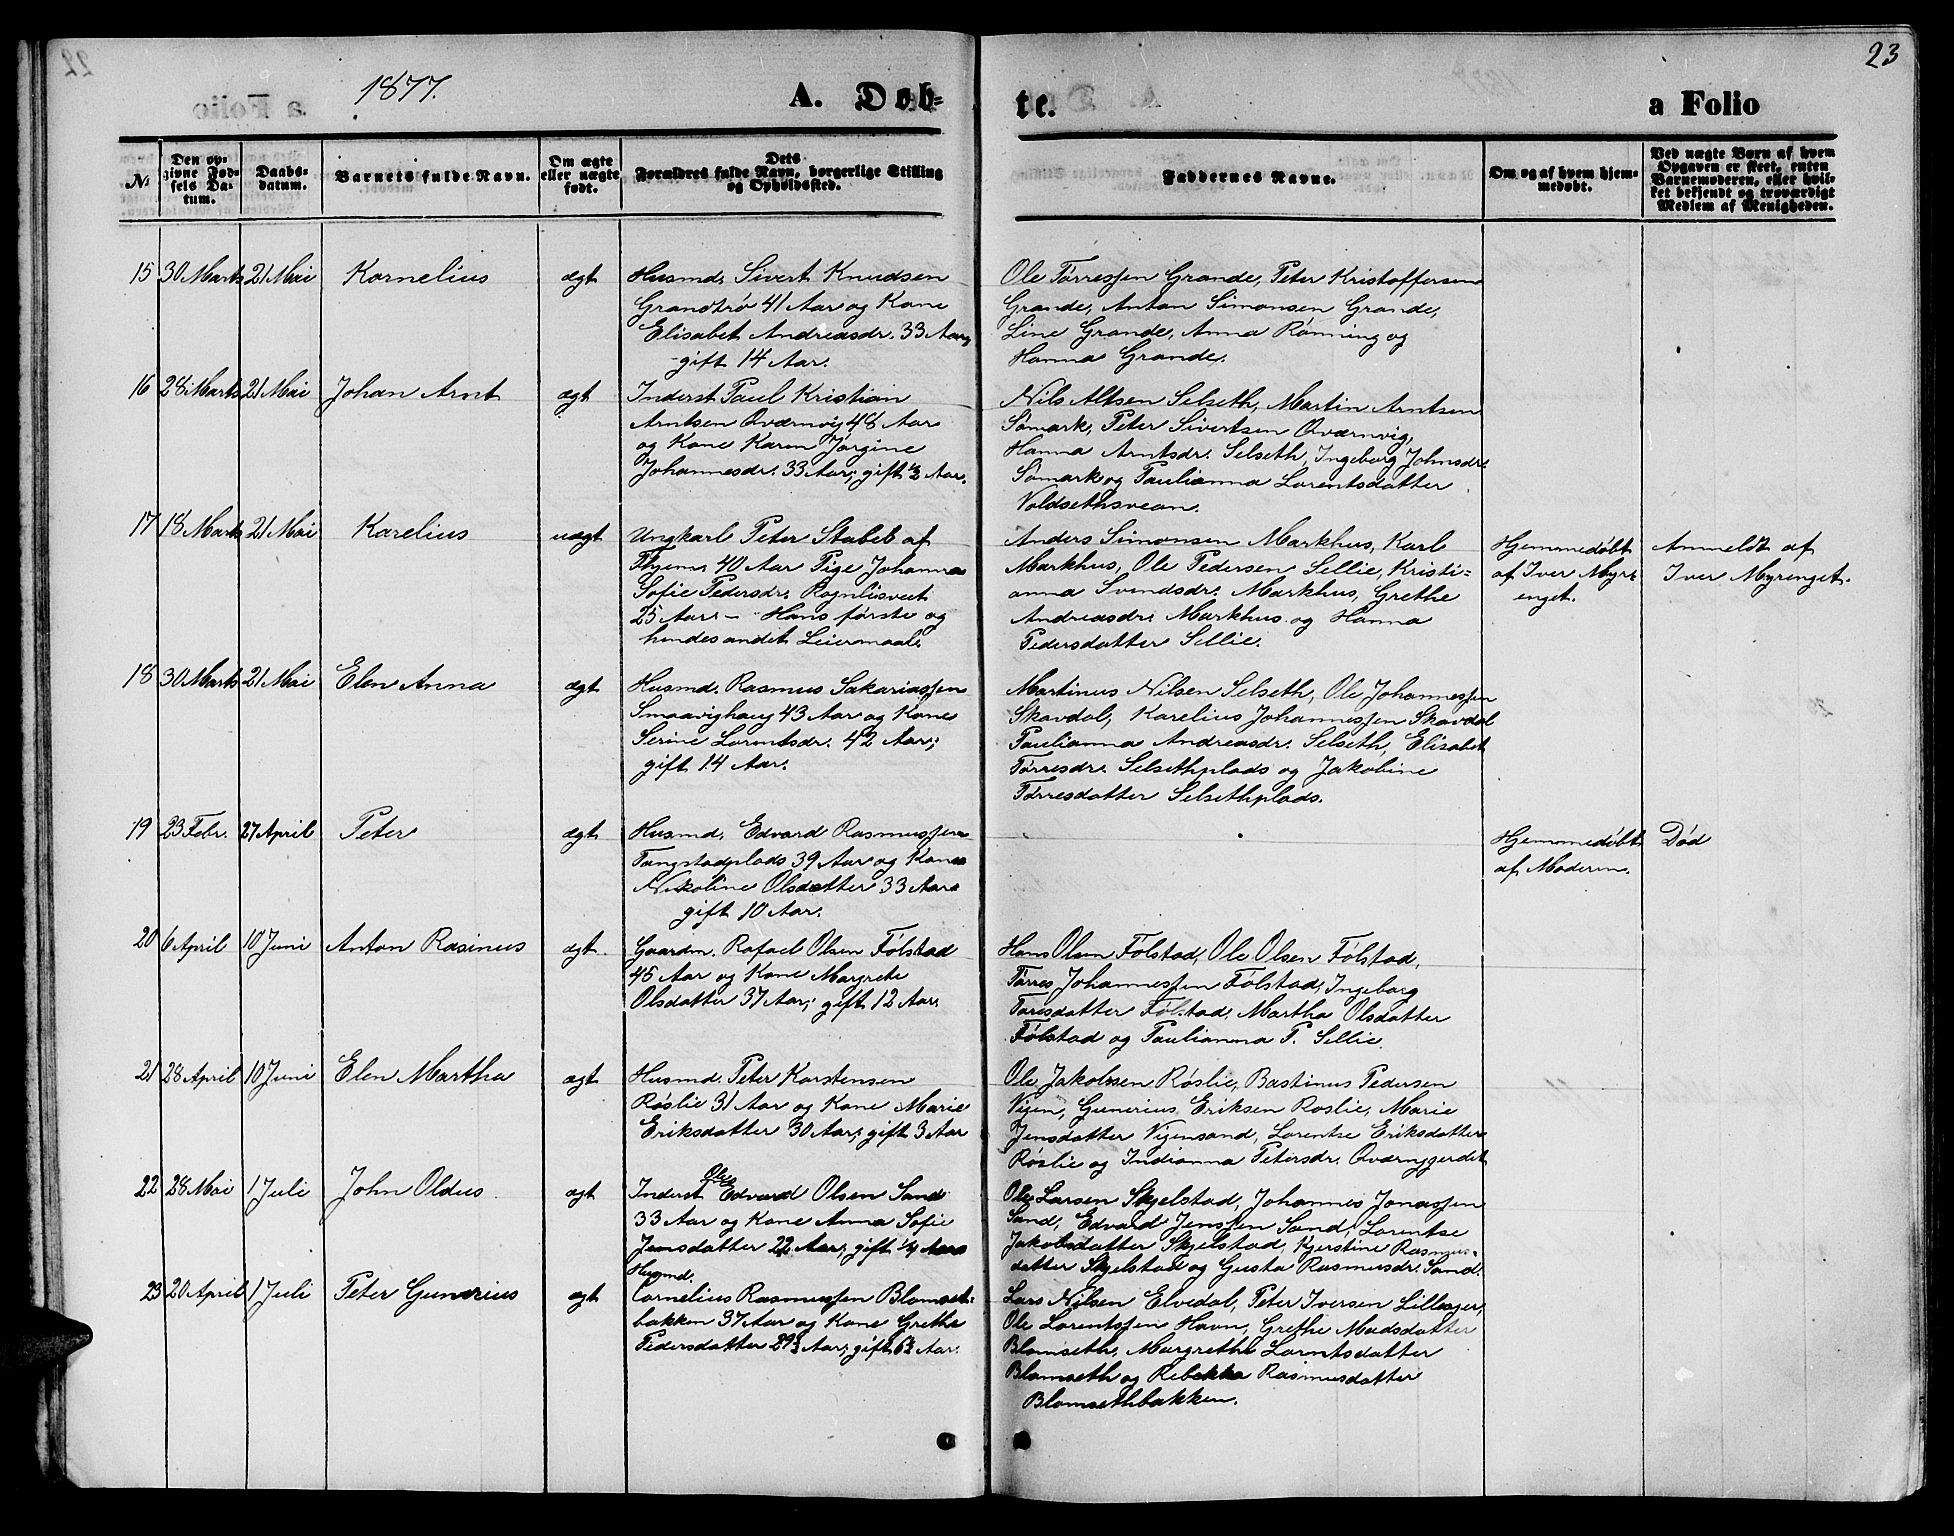 1877.
A. Døb-
te.
a Folio
23
№
Den op-
givne Fød-
sels Da-
tum.
Daabs-
datum.
Barnets fulde Navn.
Om ægte
eller uægte
født.
Dets
Forældres fulde Navn, borgerlige Stilling
og Opholdssted.
Faddernes Navne.
Om og af hvem hjem-
medøbt.
Ved uægte Børn af hvem
Opgaven er skeet, enten
Barnemoderen, eller hvil-
ket bekjendt og troværdigt
Medlem af Menigheden.
15 30 Marts 21 Mai Kornelius ægt
Husmd. Sivert Knudsen
Grandtrø 41 Aar og Kone
Elisabet Andreasdr. 33 Aar,
gift 14 Aar.
Ole Tørressen Grande, Peter Kristoffersen
Grande, Anton Simonsen Grande,
Line Grande, Anna Rønning og
Hanna Grande.
16 28 Marts 21 Mai Johan Arnt ægt
Inderst Paul Kristian
Arntsen Qværnvig 48 Aar
og Kone Karen Jørgine
Johannesdr. 33 Aar; gift ½ Aar.
Nils Altsen Selseth, Martin Arntsen
Sømark, Peter Sivertsen Qværnvig,
Hanna Arntsdr. Selseth, Ingeborg Johnsdr.
Sømark og Paulianna Lorentsdatter
Voldsethsvean.
17 18 Marts 21 Mai Karelius uægt
Ungkarl Peter Stabel af
Thjem, 40 Aar Pige Johanna
Sofie Pedersdr. Rognlisveet
25 Aar. – Hans første og
hendes andet Leiermaal.
Anders Simonsen Markhus, Karl
Markhus, Ole Pedersen Sellie, Kristi-
anna Svendsdr. Markhus, Grethe
Andreasdr. Markhus og Hanna
Pedersdatter Sellie.
Hjemmedøbt
af Iver Myr-
enget.
Anmeldt af
Iver Myrenget.
18 30 Marts 21 Mai Elen Anna ægt
Husmd. Rasmus Sakariassen
Smaavighaug 43 Aar og Kone
Serine Lorentsdr. 42 Aar;
gift 14 Aar.
Martinus Nilsen Selseth, Ole Johannessen
Skavdal, Karelius Johannessen Skavdal
Paulianna Andreasdr. Selseth, Elisabet
Tørresdr. Selsethplads og Jakobine
Tørresdatter Selsethplads.
19 23 Febr. 27 April Peter ægt
Husmd. Edvard Rasmussen
Tangstadplads 39 Aar og Kone
Nikoline Olsdatter 33 Aar
gift 10 Aar.
Hjemmedøbt
af Moderen.
Død
20 6 April 10 Juni Anton Rasinus ægt.
Gaardm. Rafael Olsen Følstad
45 Aar og Kone Margrete
Olsdatter 37 Aar; gift 12 Aar.
Hans Olsen Følstad, Ole Olsen Følstad,
Tørres Johannessen Følstad, Ingeborg
Torisdatter Følstad, Martha Olsdatter
Følstad og Paulianna P. Sellie.
21 28 April 10 Juni Elen Martha ægt
Husmd. Peter Karstensen
Røslie 31 Aar og Kone Marie
Eriksdatter 30 Aar; gift 3 Aar
Ole Jakobsen Røslie, Bastinus Pedersen
Vigen, Gunerius Eriksen Roslie, Marie
Jensdatter Vigensand, Lorentse Eriksdatter
Røslie og Indianna Petersdr. Qværnygerdet
22 28 Mai 1 Juli John Oldus. ægt
Ole
Inderst Edvard Olsen Sand
33 Aar og Kone Anna Sofie
Jensdatter 22 Aar; gift ¼ Aar
Ole Larsen Skjelstad, Johannes Jonassen
Sand, Edvard Jenssen Sand, Lorentse
Jakobsdatter Skjelstad, Kjerstine Rasmus-
datter Skjelstad og Gusta Rasmusdr. Sand.
23 20 April 1 Juli Peter Gunerius ægt
Husmd.
Cornelius Rasmussen Blomset-
bakken 37 Aar og Kone Grethe
Pedersdatter 29½ Aar; gift 6½ Aar.
Lars Nilsen Elvedal, Peter Iversen Lilleager,
Ole Lorentssen Havn, Grethe Madsdatter
Blomseth, Margrethe Lorentsdatter
Blomseth og Rebekka Rasmusdatter
Blomsethbakken.